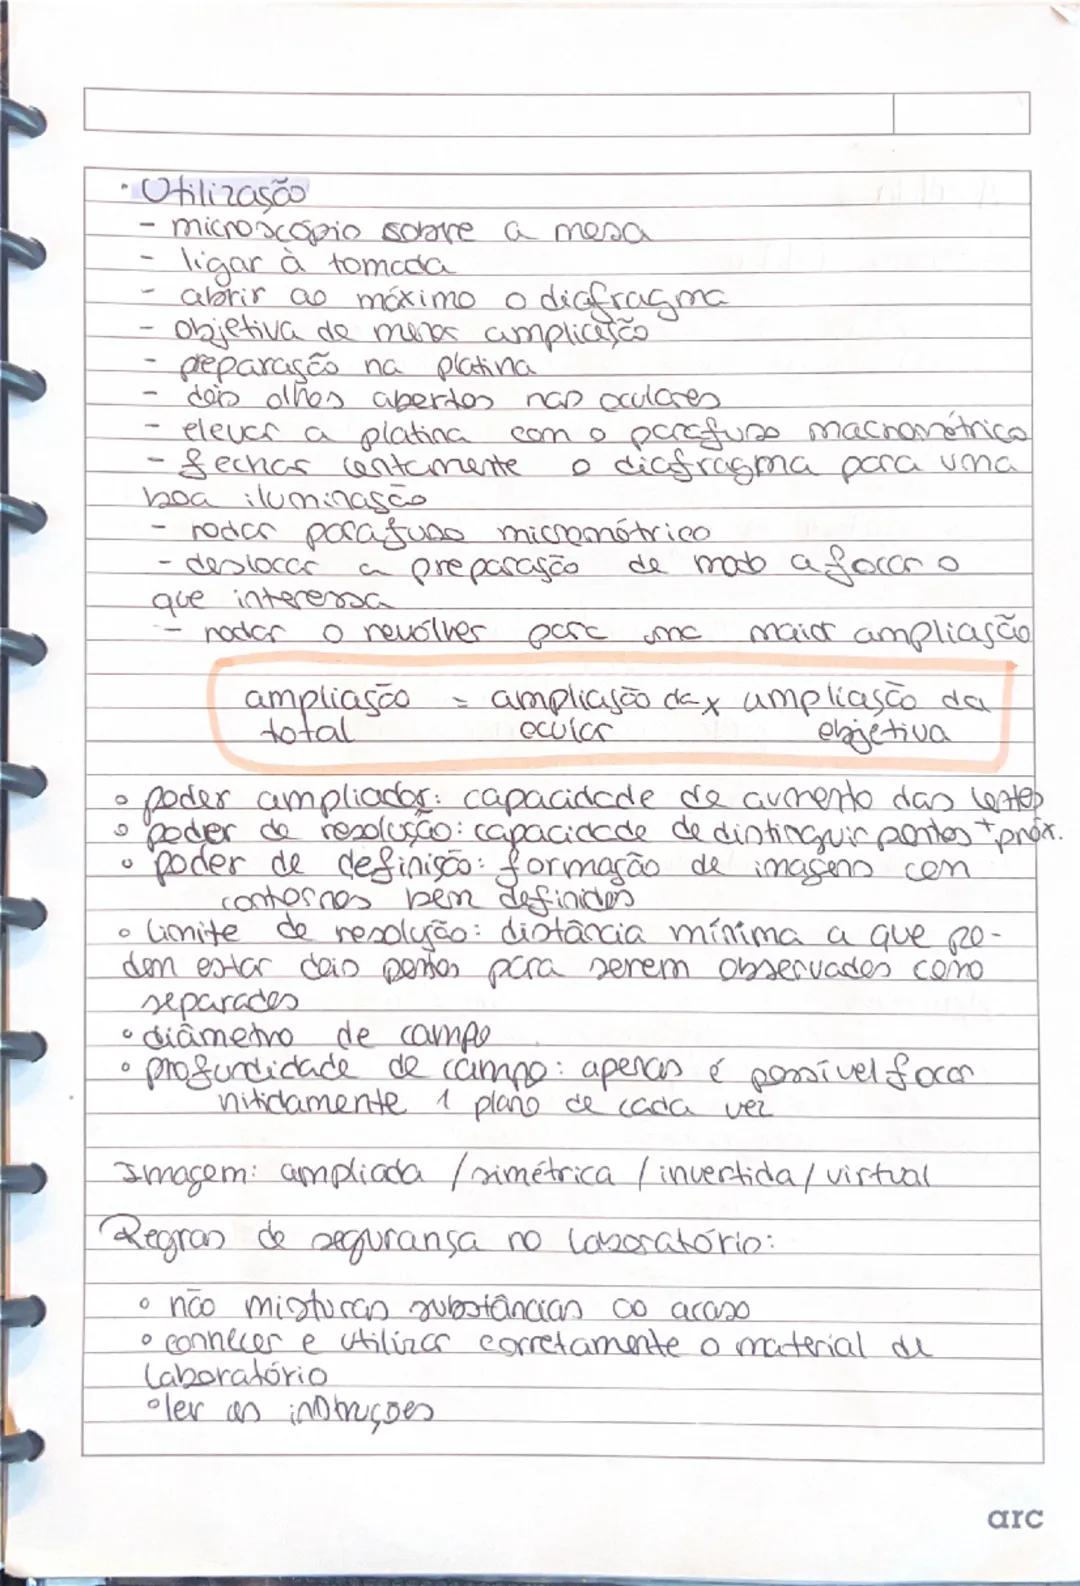 · Utilização
- microscópio sobre a mesa
- ligar à tomada
- abrir ao máximo o diafragma
- objetiva de menor ampliação
- preparação na platina
- dois olhos abertos nas oculares
- elevar a platina com o parafuso macrométrico
- fechar lentamente o diafragma para uma
boa iluminação
- rodar parafuso micrométrico
- deslocar a preparação de modo a focar o
que interessa
- rodar o revólver para uma maior ampliação
ampliação = ampliação da x ampliação da
total ocular objetiva
° poder ampliador: capacidade de aumento das lentes
° poder de resolução: capacidade de distinguir pontos + próx.
° poder de definição: formação de imagens com
contornos bem definidos
° limite de resolução: distância mínima a que po-
dem estar dois pontos para serem observados como
separados
° diâmetro de campo
° profundidade de campo: apenas é possível focar
nitidamente 1 plano de cada vez
Imagem: ampliada / simétrica / invertida / virtual
Regras de segurança no laboratório:
° não misturas substâncias ao acaso
° conhecer e utilizar corretamente o material de
laboratório
° ler as instruções
arc